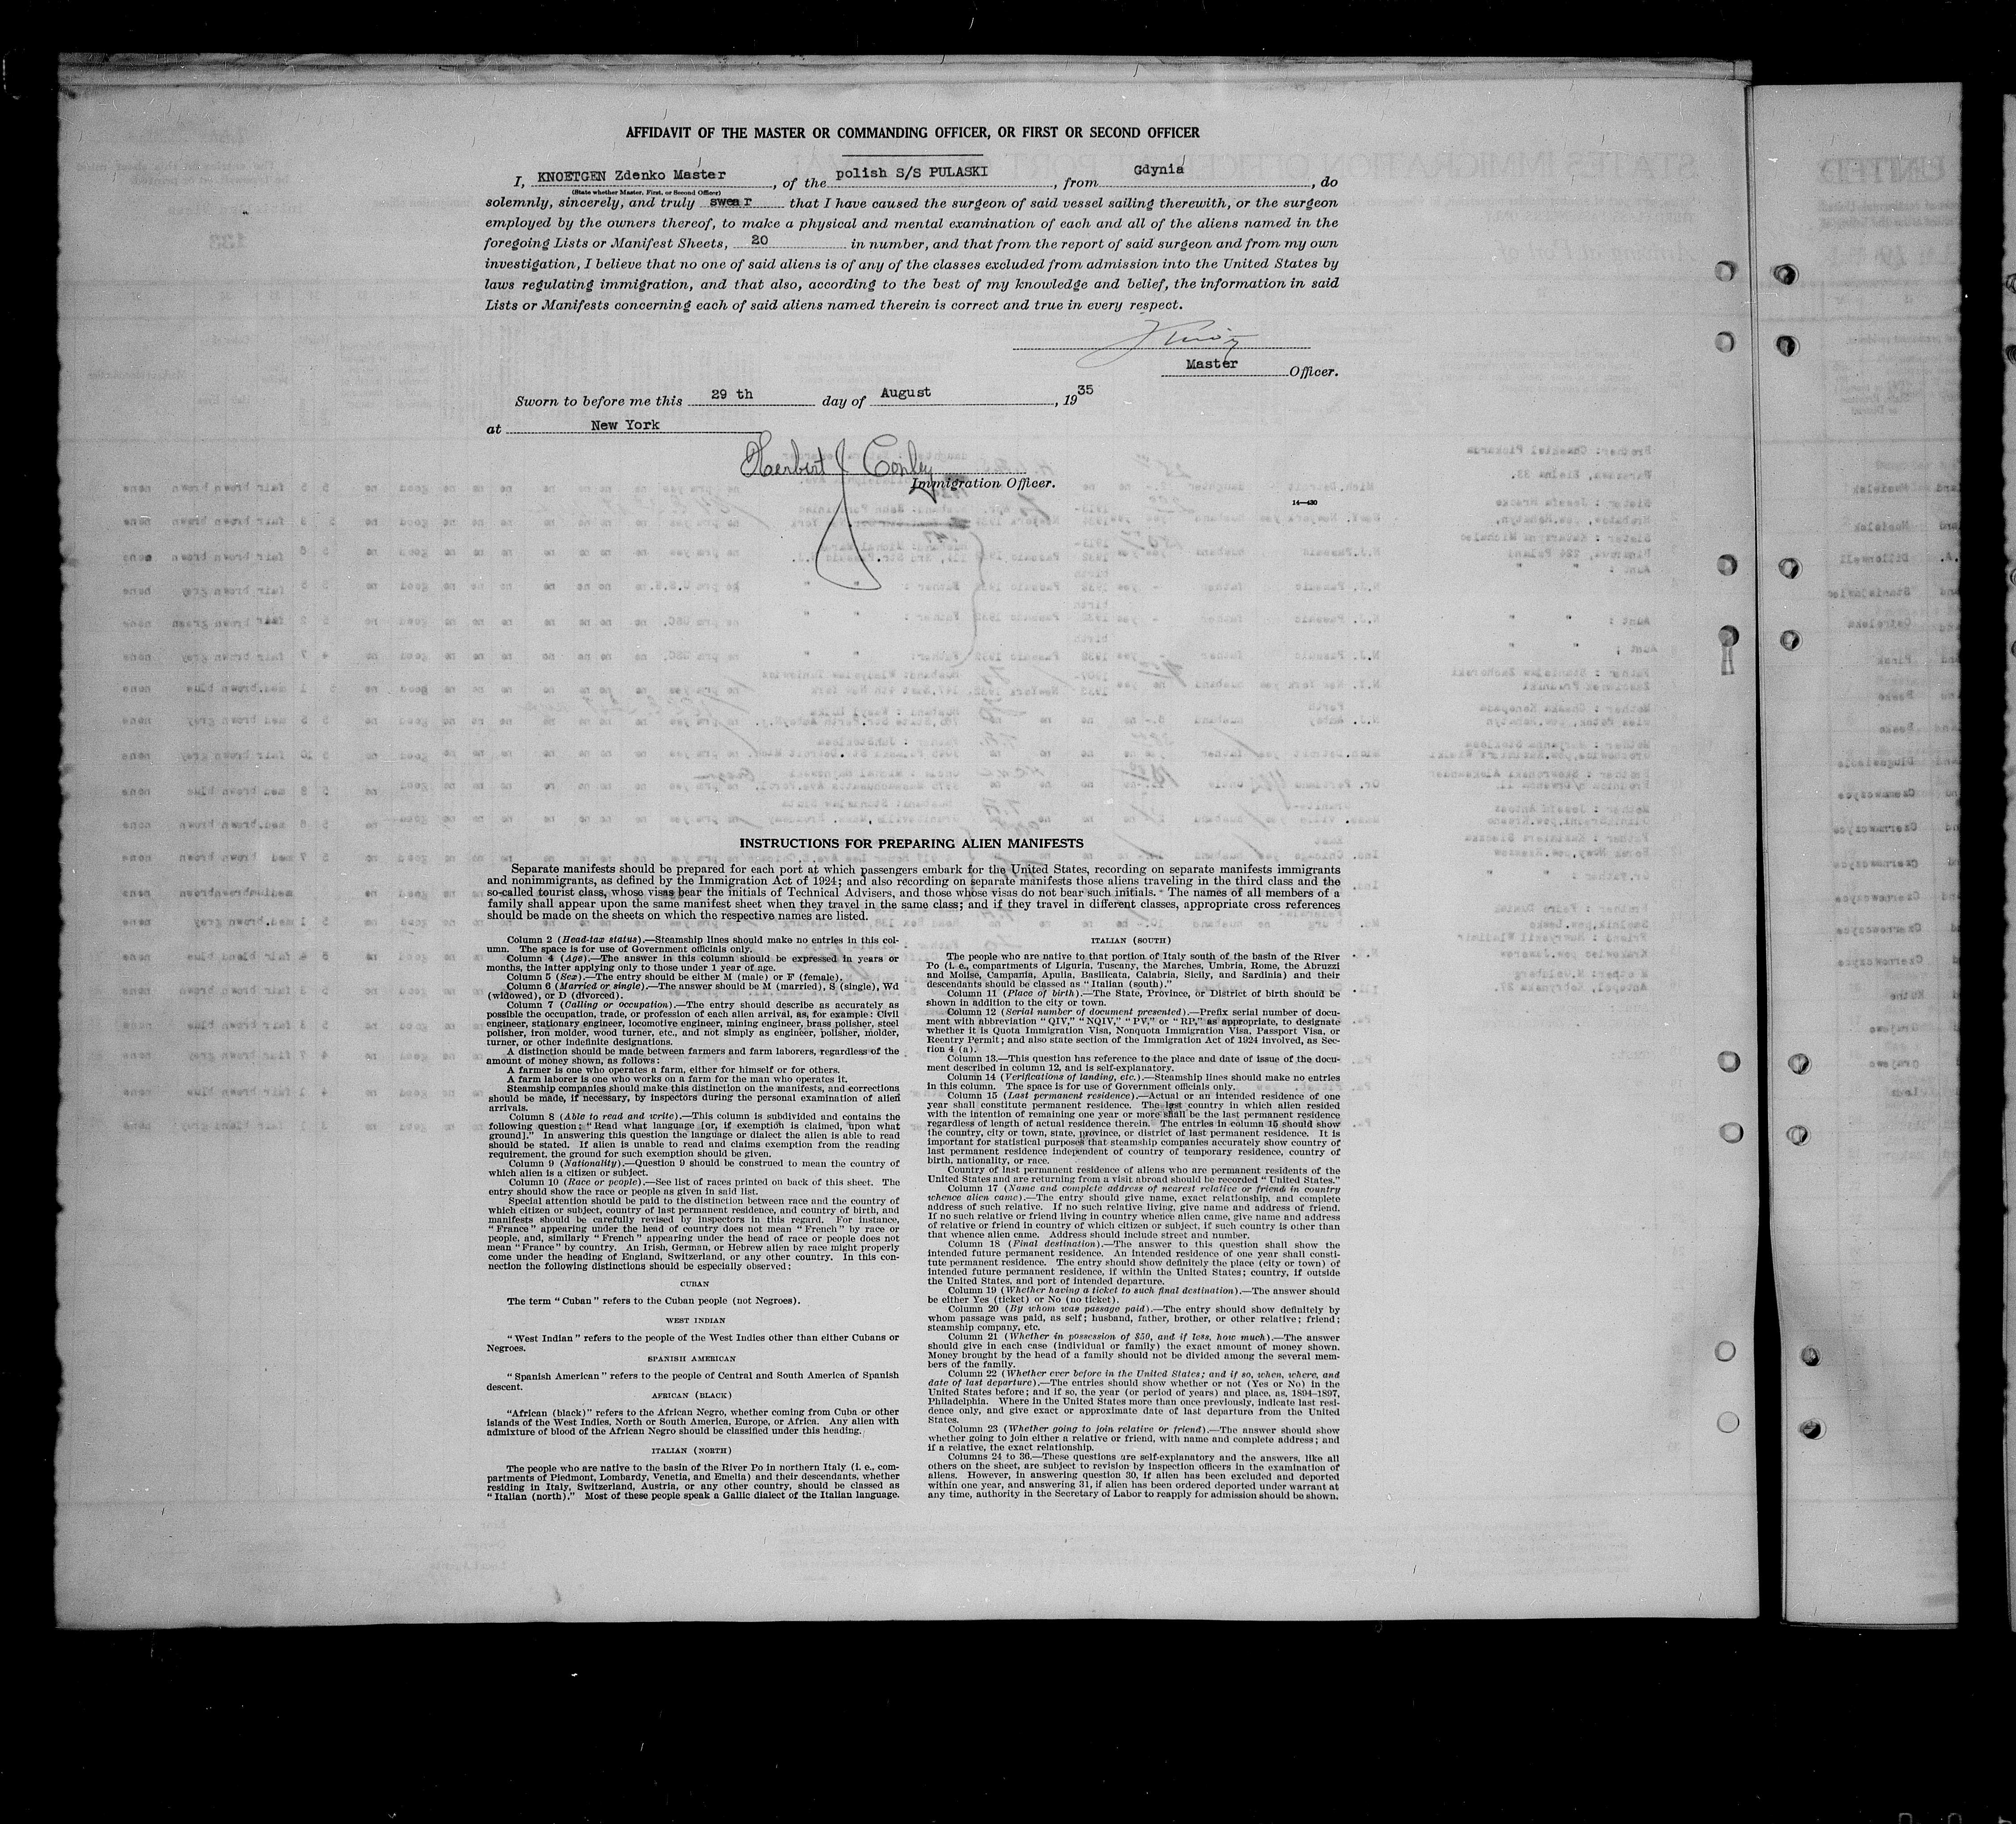 AFFIDAVIT OF THE MASTER OR COMMANDING OFFICER, OR FIRST OR SECOND OFFICER
I, KNOETGEN Zdenko Master, of the polish S/S PULASKI, from Gdynia, do
(State whether Master, First, or Second Officer)
solemnly, sincerely, and truly swear that I have caused the surgeon of said vessel sailing therewith, or the surgeon
employed by the owners thereof, to make a physical and mental examination of each and all of the aliens named in the
foregoing Lists or Manifest Sheets, 20 in number, and that from the report of said surgeon and from my own
investigation, I believe that no one of said aliens is of any of the classes excluded from admission into the United States by
laws regulating immigration, and that also, according to the best of my knowledge and belief, the information in said
Lists or Manifests concerning each of said aliens named therein is correct and true in every respect.
Master Officer.
Sworn to before me this 29 th day of August, 1935
at New York
Herbert J Conley
Immigration Officer.
14—430
INSTRUCTIONS FOR PREPARING ALIEN MANIFESTS
Separate manifests should be prepared for each port at which passengers embark for the United States, recording on separate manifests immigrants
and nonimmigrants, as defined by the Immigration Act of 1924; and also recording on separate manifests those aliens traveling in the third class and the
so-called tourist class, whose visas bear the initials of Technical Advisers, and those whose visas do not bear such initials. The names of all members of a
family shall appear upon the same manifest sheet when they travel in the same class; and if they travel in different classes, appropriate cross references
should be made on the sheets on which the respective names are listed.
Column 2 (Head-tax status).—Steamship lines should make no entries in this col-
umn. The space is for use of Government officials only.
Column 4 (Age).—The answer in this column should be expressed in years or
months, the latter applying only to those under 1 year of age.
Column 5 (Sex).—The entry should be either M (male) or F (female).
Column 6 (Married or single).—The answer should be M (married), S (single), Wd
(widowed), or D (divorced).
Column 7 (Calling or occupation).—The entry should describe as accurately as
possible the occupation, trade, or profession of each alien arrival, as, for example: Civil
engineer, stationary engineer, locomotive engineer, mining engineer, brass polisher, steel
polisher, iron molder, wood turner, etc., and not simply as engineer, polisher, molder,
turner, or other indefinite designations.
A distinction should be made between farmers and farm laborers, regardless of the
amount of money shown, as follows:
A farmer is one who operates a farm, either for himself or for others.
A farm laborer is one who works on a farm for the man who operates it.
Steamship companies should make this distinction on the manifests, and corrections
should be made, if necessary, by inspectors during the personal examination of alien
arrivals.
Column 8 (Able to read and write).—This column is subdivided and contains the
following question: "Read what language [or, if exemption is claimed, upon what
ground]." In answering this question the language or dialect the alien is able to read
should be stated. If alien is unable to read and claims exemption from the reading
requirement, the ground for such exemption should be given.
Column 9 (Nationality).—Question 9 should be construed to mean the country of
which alien is a citizen or subject.
Column 10 (Race or people).—See list of races printed on back of this sheet. The
entry should show the race or people as given in said list.
Special attention should be paid to the distinction between race and the country of
which citizen or subject, country of last permanent residence, and country of birth, and
manifests should be carefully revised by inspectors in this regard. For instance,
"France" appearing under the head of country does not mean "French" by race or
people, and, similarly "French" appearing under the head of race or people does not
mean "France" by country. An Irish, German, or Hebrew alien by race might properly
come under the heading of England, Switzerland, or any other country. In this con-
nection the following distinctions should be especially observed:
CUBAN
The term "Cuban" refers to the Cuban people (not Negroes).
WEST INDIAN
"West Indian" refers to the people of the West Indies other than either Cubans or
Negroes.
SPANISH AMERICAN
"Spanish American" refers to the people of Central and South America of Spanish
descent.
AFRICAN (BLACK)
"African (black)" refers to the African Negro, whether coming from Cuba or other
islands of the West Indies, North or South America, Europe, or Africa. Any alien with
admixture of blood of the African Negro should be classified under this heading.
ITALIAN (NORTH)
The people who are native to the basin of the River Po in northern Italy (i. e., com-
partments of Piedmont, Lombardy, Venetia, and Emelia) and their descendants, whether
residing in Italy, Switzerland, Austria, or any other country, should be classed as
"Italian (north)." Most of these people speak a Gallic dialect of the Italian language.
ITALIAN (SOUTH)
The people who are native to that portion of Italy south of the basin of the River
Po (i. e., compartments of Liguria, Tuscany, the Marches, Umbria, Rome, the Abruzzi
and Molise, Campania, Apulia, Basilicata, Calabria, Sicily, and Sardinia) and their
descendants should be classed as "Italian (south)."
Column 11 (Place of birth).—The State, Province, or District of birth should be
shown in addition to the city or town.
Column 12 (Serial number of document presented).—Prefix serial number of docu-
ment with abbreviation "QIV," "NQIV," "PV," or "RP," as appropriate, to designate
whether it is Quota Immigration Visa, Nonquota Immigration Visa, Passport Visa, or
Reentry Permit; and also state section of the Immigration Act of 1924 involved, as Sec-
tion 4 (a).
Column 13.—This question has reference to the place and date of issue of the docu-
ment described in column 12, and is self-explanatory.
Column 14 (Verifications of landing, etc.).—Steamship lines should make no entries
in this column. The space is for use of Government officials only.
Column 15 (Last permanent residence).—Actual or an intended residence of one
year shall constitute permanent residence. The last country in which alien resided
with the intention of remaining one year or more shall be the last permanent residence
regardless of length of actual residence therein. The entries in column 15 should show
the country, city or town, state, province, or district of last permanent residence. It is
important for statistical purposes that steamship companies accurately show country of
last permanent residence independent of country of temporary residence, country of
birth, nationality, or race.
Country of last permanent residence of aliens who are permanent residents of the
United States and are returning from a visit abroad should be recorded "United States."
Column 17 (Name and complete address of nearest relative or friend in country
whence alien came).—The entry should give name, exact relationship, and complete
address of such relative. If no such relative living, give name and address of friend.
If no such relative or friend living in country whence alien came, give name and address
of relative or friend in country of which citizen or subject, if such country is other than
that whence alien came. Address should include street and number.
Column 18 (Final destination).—The answer to this question shall show the
intended future permanent residence. An intended residence of one year shall consti-
tute permanent residence. The entry should show definitely the place (city or town) of
intended future permanent residence, if within the United States; country, if outside
the United States, and port of intended departure.
Column 19 (Whether having a ticket to such final destination).—The answer should
be either Yes (ticket) or No (no ticket).
Column 20 (By whom was passage paid).—The entry should show definitely by
whom passage was paid, as self; husband, father, brother, or other relative; friend;
steamship company, etc.
Column 21 (Whether in possession of $50, and if less, how much).—The answer
should give in each case (individual or family) the exact amount of money shown.
Money brought by the head of a family should not be divided among the several mem-
bers of the family.
Column 22 (Whether ever before in the United States; and if so, when, where, and
date of last departure).—The entries should show whether or not (Yes or No) in the
United States before; and if so, the year (or period of years) and place, as, 1894–1897,
Philadelphia. Where in the United States more than once previously, indicate last resi-
dence only, and give exact or approximate date of last departure from the United
States.
Column 23 (Whether going to join relative or friend).—The answer should show
whether going to join either a relative or friend, with name and complete address; and
if a relative, the exact relationship.
Columns 24 to 36.—These questions are self-explanatory and the answers, like all
others on the sheet, are subject to revision by inspection officers in the examination of
aliens. However, in answering question 30, if alien has been excluded and deported
within one year, and answering 31, if alien has been ordered deported under warrant at
any time, authority in the Secretary of Labor to reapply for admission should be shown.